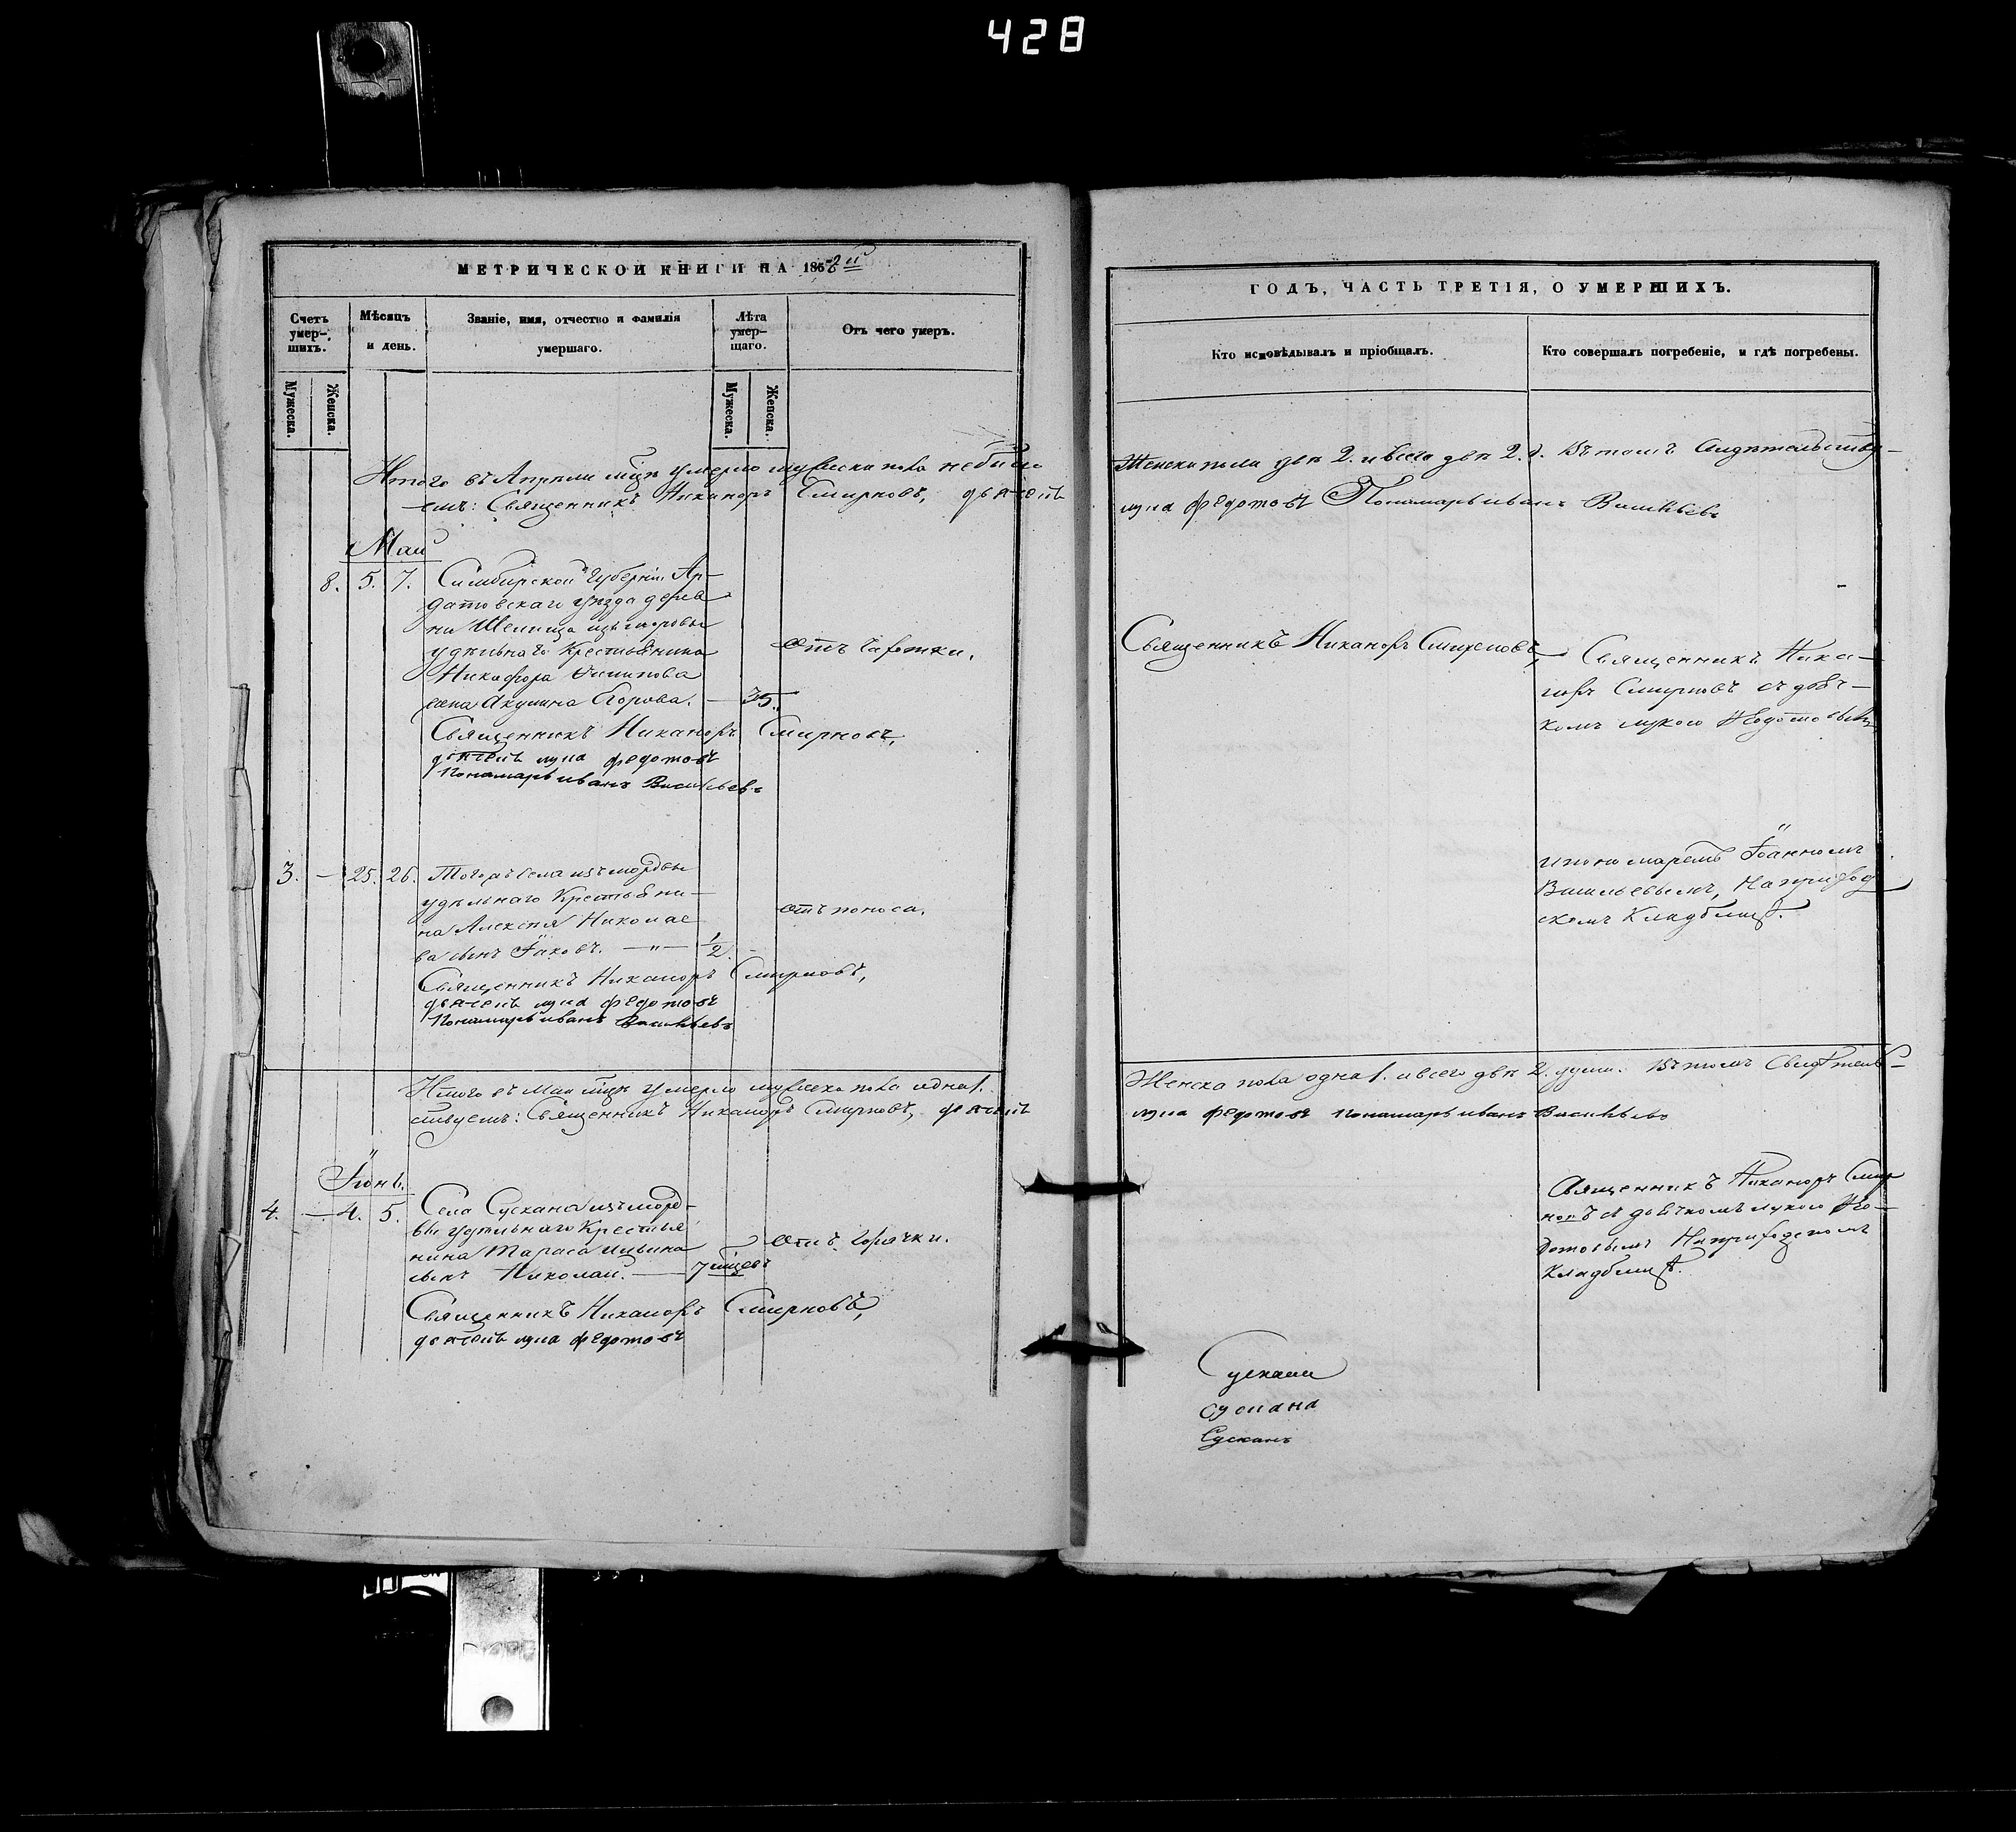 428
МЕТРИЧЕСКОЙ КНИГИ НА 185
Счетъ умер-шихъ.
Мѣсяцъ и день.
Званіе, имя, отчество и фамилія умершаго.
Лѣта умер-шаго.
Отъ чего умеръ.
Мужеска.
Женска.
Мужеска.
Женска.
Итого въ Апрѣли мцѣ умерло мужеска пола небыло
емъ: Священникъ Никаноръ Смирновъ, дьячекъ
Май
8. 5. 7. Симбирской Губерніи Ар-
датовскаго уѣзда дерев
ни изъ мордвы
удѣльнаго Крестьянина
Никифора Осипова
жена Акулина Егорова. — 35.
Отъ чахотки.
Священникъ Никаноръ Смирновъ,
дьячекъ лука федотовъ
Пономарь иванъ Васильевъ
3. — 25. 26. Тогожъ села изъ мордвы
удѣльнаго Крестьяни-
на Алексѣя Николае
ва сынъ Іаковъ. —"— 1/2.
Отъ поноса.
Священникъ Никаноръ Смирновъ,
дьячекъ лука федотовъ
Пономарь иванъ Васильевъ
Итого въ Маи мцѣ умерло мужеска пола одна 1.
ствуемъ: Священникъ Никаноръ Смирновъ, дьячекъ
Іюнь.
4. —. 4. 5. Села Сускана изъ морд-
вы удѣльнаго Крестья
нина Тараса ильина
сынъ Николай. — 7 мцовъ
Отъ горячки.
Священникъ Никаноръ Смирновъ,
дьячекъ лука федотовъ
ГОДЪ, ЧАСТЬ ТРЕТІЯ, О УМЕРШИХЪ.
Кто исповѣдывалъ и пріобщалъ.
Кто совершалъ погребеніе, и гдѣ погребены.
Женска пола двѣ 2. и всего двѣ 2. д. Въ томъ Свидѣтельству-
лука федотовъ Пономарь иванъ Васильевъ
Священникъ Никаноръ Смирновъ,
Священникъ Ника-
норъ Смирновъ съ дья-
комъ лукою Федотовымъ
и пономаремъ Іоанномъ
Васильевымъ, На приход
скомъ Кладбищѣ.
Женска пола одна 1. и всего двѣ 2. души. Въ томъ Свидѣтель-
лука федотовъ пономарь иванъ Васильевъ
Священникъ Никаноръ Смир
новъ съ дьячкомъ лукою Фе-
дотовымъ На приходскомъ
Кладбищѣ.
Сускана
Сусканъ